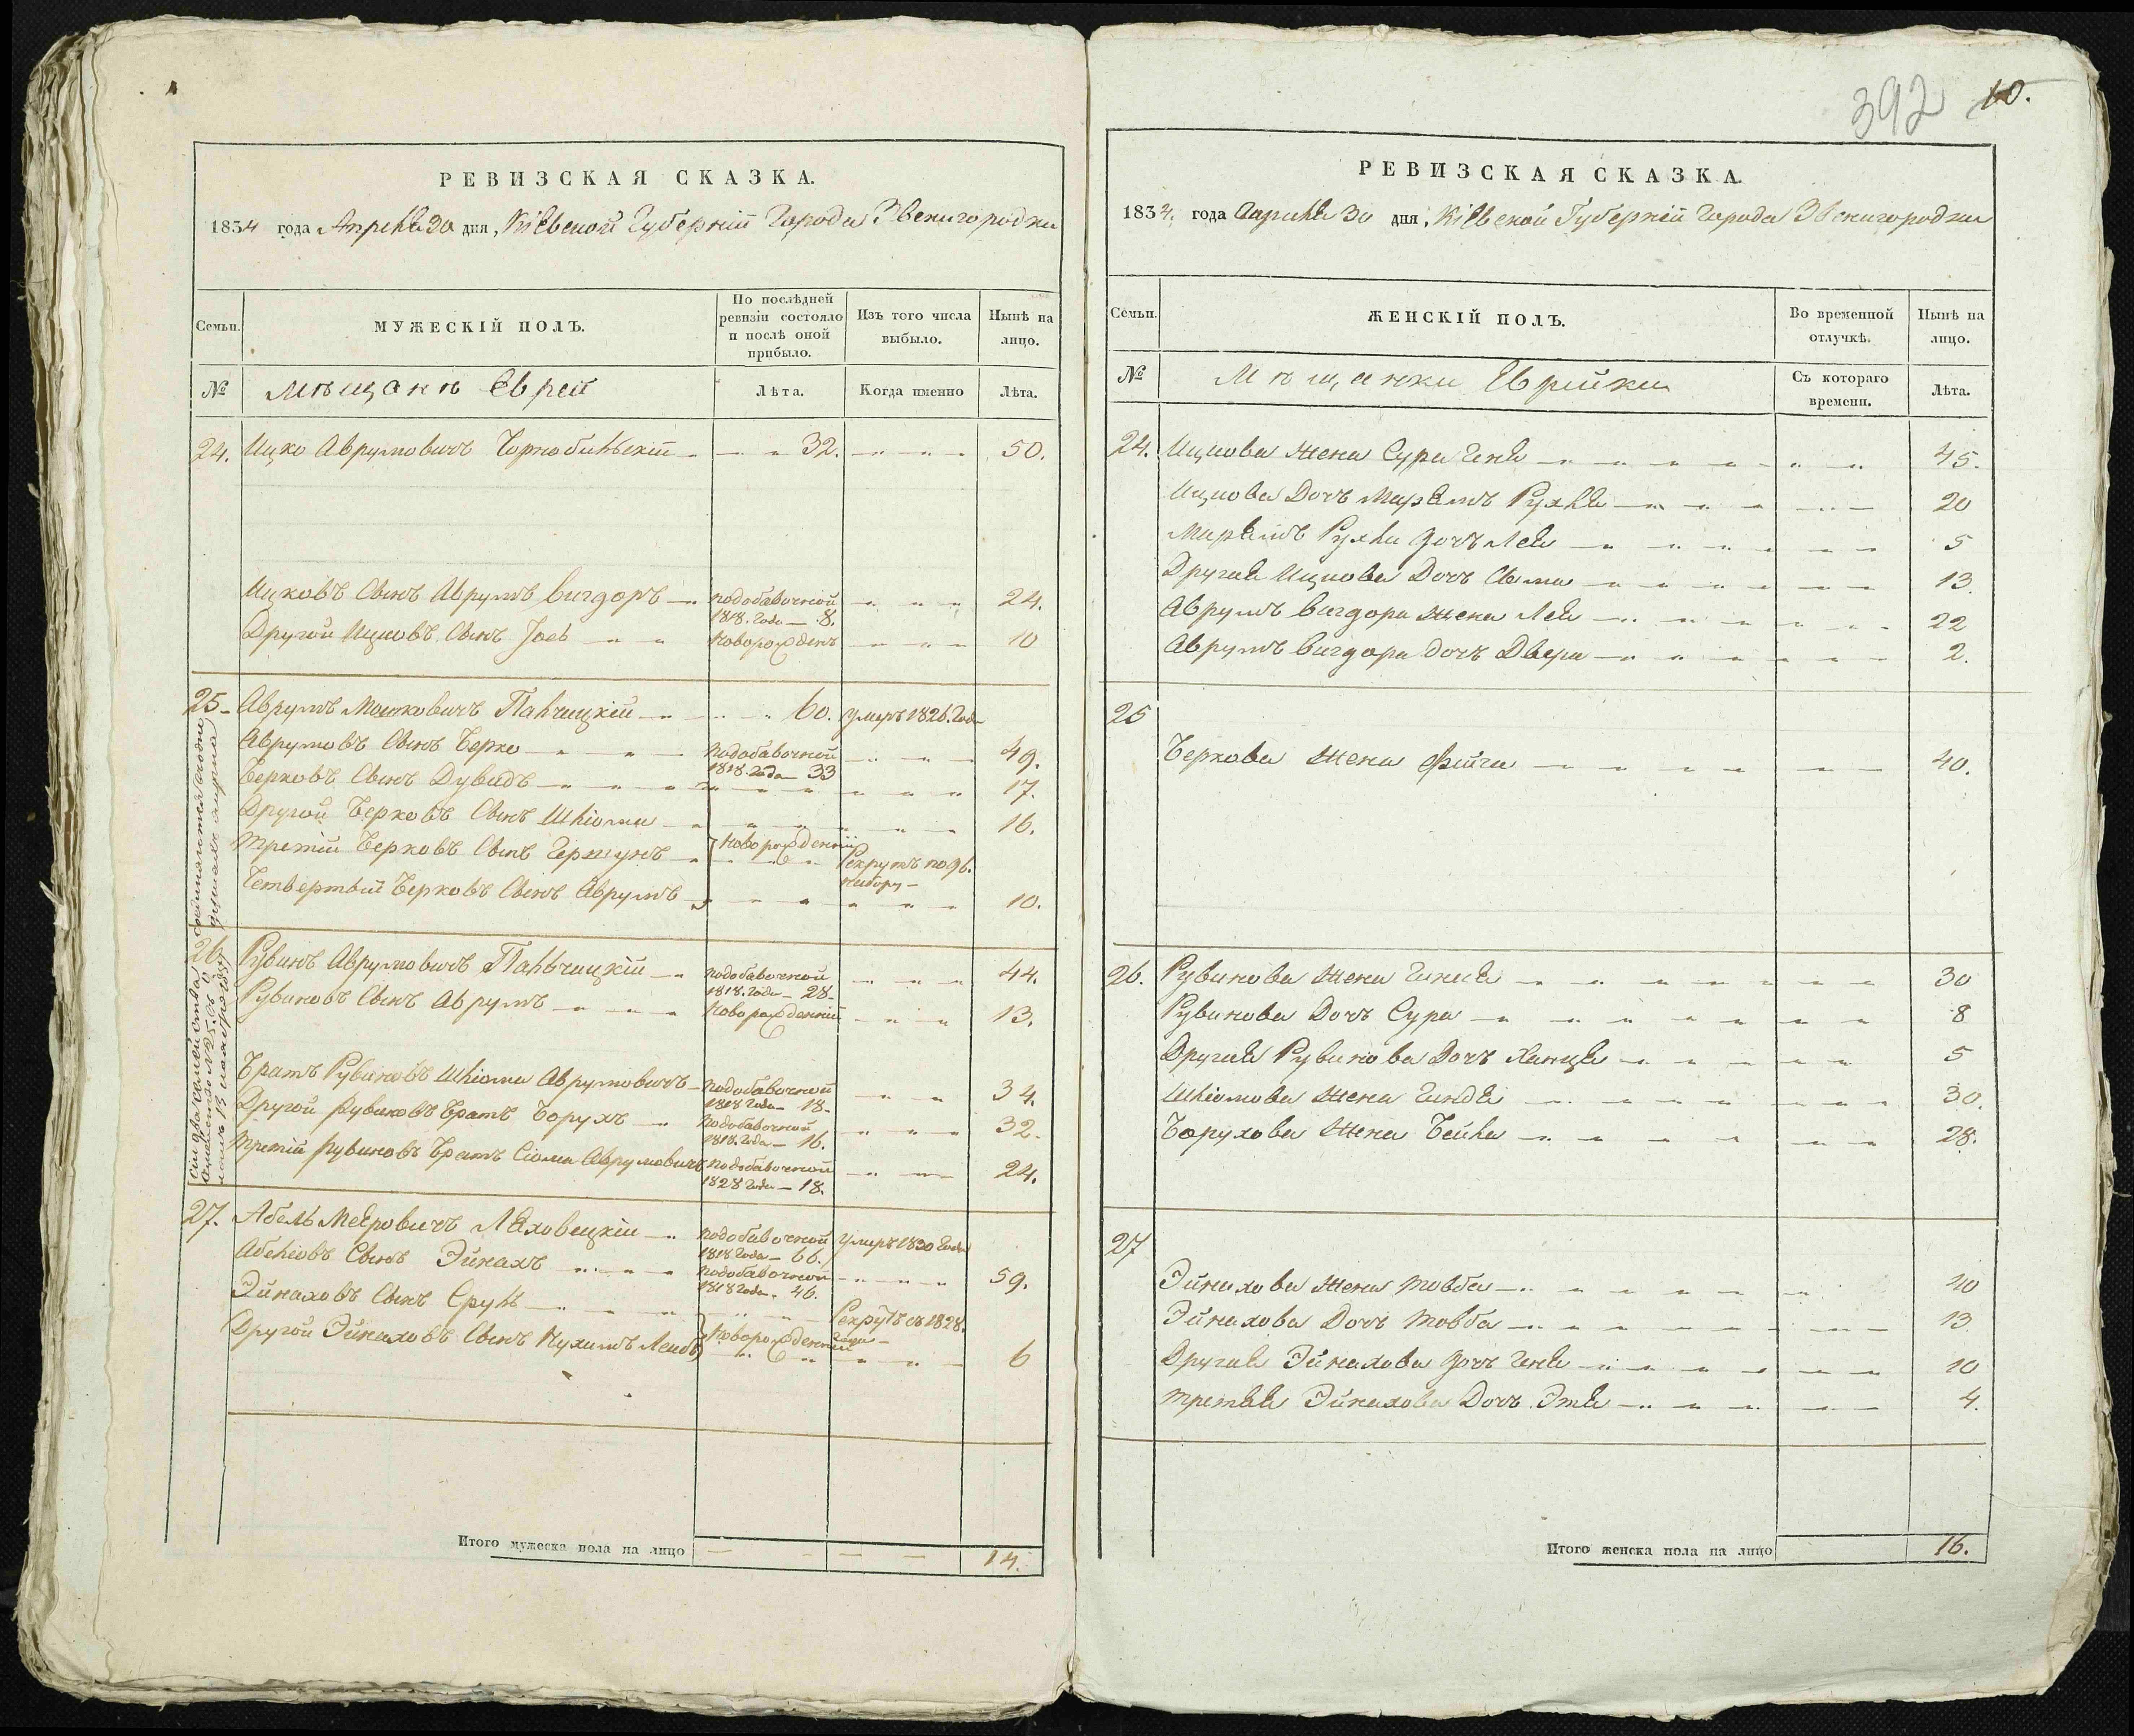 РЕВИЗСКАЯ СКАЗКА.
1834 года Апреля 30 дня, Кіевской Губерніи Города Звенигородки
Семьи.
МУЖЕСКІЙ ПОЛЪ.
По послѣдней ревизіи состояло и послѣ оной прибыло.
Изъ того числа выбыло.
Нынѣ на лицо.
№
Мѣщанѣ Евреи
Лѣта.
Когда именно
Лѣта.
24. Ицко Аврумовичъ Чорнобильскій 32. 50.
Ицковъ Сынъ Аврумъ Вигдоръ подобавочной 1818. года 8. 24.
Другой Ицковъ Сынъ Іось новорожденъ 10
25 Аврумъ Мошковичъ Пальчицкій 60. умеръ 1826. года
Аврумовъ Сынъ Берко подобавочной 1818 года 33 49.
Берковъ Сынъ Дувидъ 17.
Другой Берковъ Сынъ Шліома 16.
Третій Берковъ Сынъ Гершунъ новорожденніи Рекрутъ по 96. набору
Четвертый Берковъ Сынъ Аврумъ 10.
26. Рувинъ Аврумовичъ Пальчицкій подобавочной 1818. года 28 44.
Рувиновъ Сынъ Аврумъ новорожденній 13.
Братъ Рувиновъ Шліома Аврумовичъ подобавочной 1818 года 18 34.
Другой Рувиновъ Братъ Борухъ подобавочной 1818. года 16. 32.
Третій Рувиновъ Братъ Сіома Аврумовичъ подобавочной 1828 года 18. 24.
27. Абель Меяровичъ Ляховецкій подобавочной 1818 года 66. умеръ 1830 года
Абеліовъ Сынъ Эйнахъ подобавочной 1818 года 46. 59.
Эйнаховъ Сынъ Сруль Рекрутъ съ 1828. года
Другой Эйнаховъ Сынъ Нухимъ Лейбъ новорожденній 6
Итого мужеска пола на лицо 14.
392 10.
РЕВИЗСКАЯ СКАЗКА.
1834. года Апреля 30 дня, Кіевской Губерніи Города Звенигородки
Семьи.
ЖЕНСКІЙ ПОЛЪ.
Во временной отлучкѣ.
Нынѣ на лицо.
№
Мѣщанки Еврейки
Съ котораго времени.
Лѣта.
24. Ицкова Жена Сура Геня 45.
Ицкова Дочъ Мирямъ Рухля 20
Мирямъ Рухли дочъ Лея 5
Другая Ицкова Дочъ Сима 13.
Аврумъ Вигдора жена Лея 22
Аврумъ Вигдора дочъ Двера 2.
25
Беркова Жена Фейга 40.
26. Рувинова Жена Гиня 30
Рувинова Дочъ Сура 8
Другая Рувинова Дочъ Ханця 5
Шліомова Жена Гиндя 30.
Борухова Жена Бейла 28.
27
Эйнахова Жена Товба 40
Эйнахова Дочъ Товба 13
Другая Эйнахова дочъ Геня 10
Третья Эйнахова Дочъ Этя 4.
Итого женска пола на лицо 16.